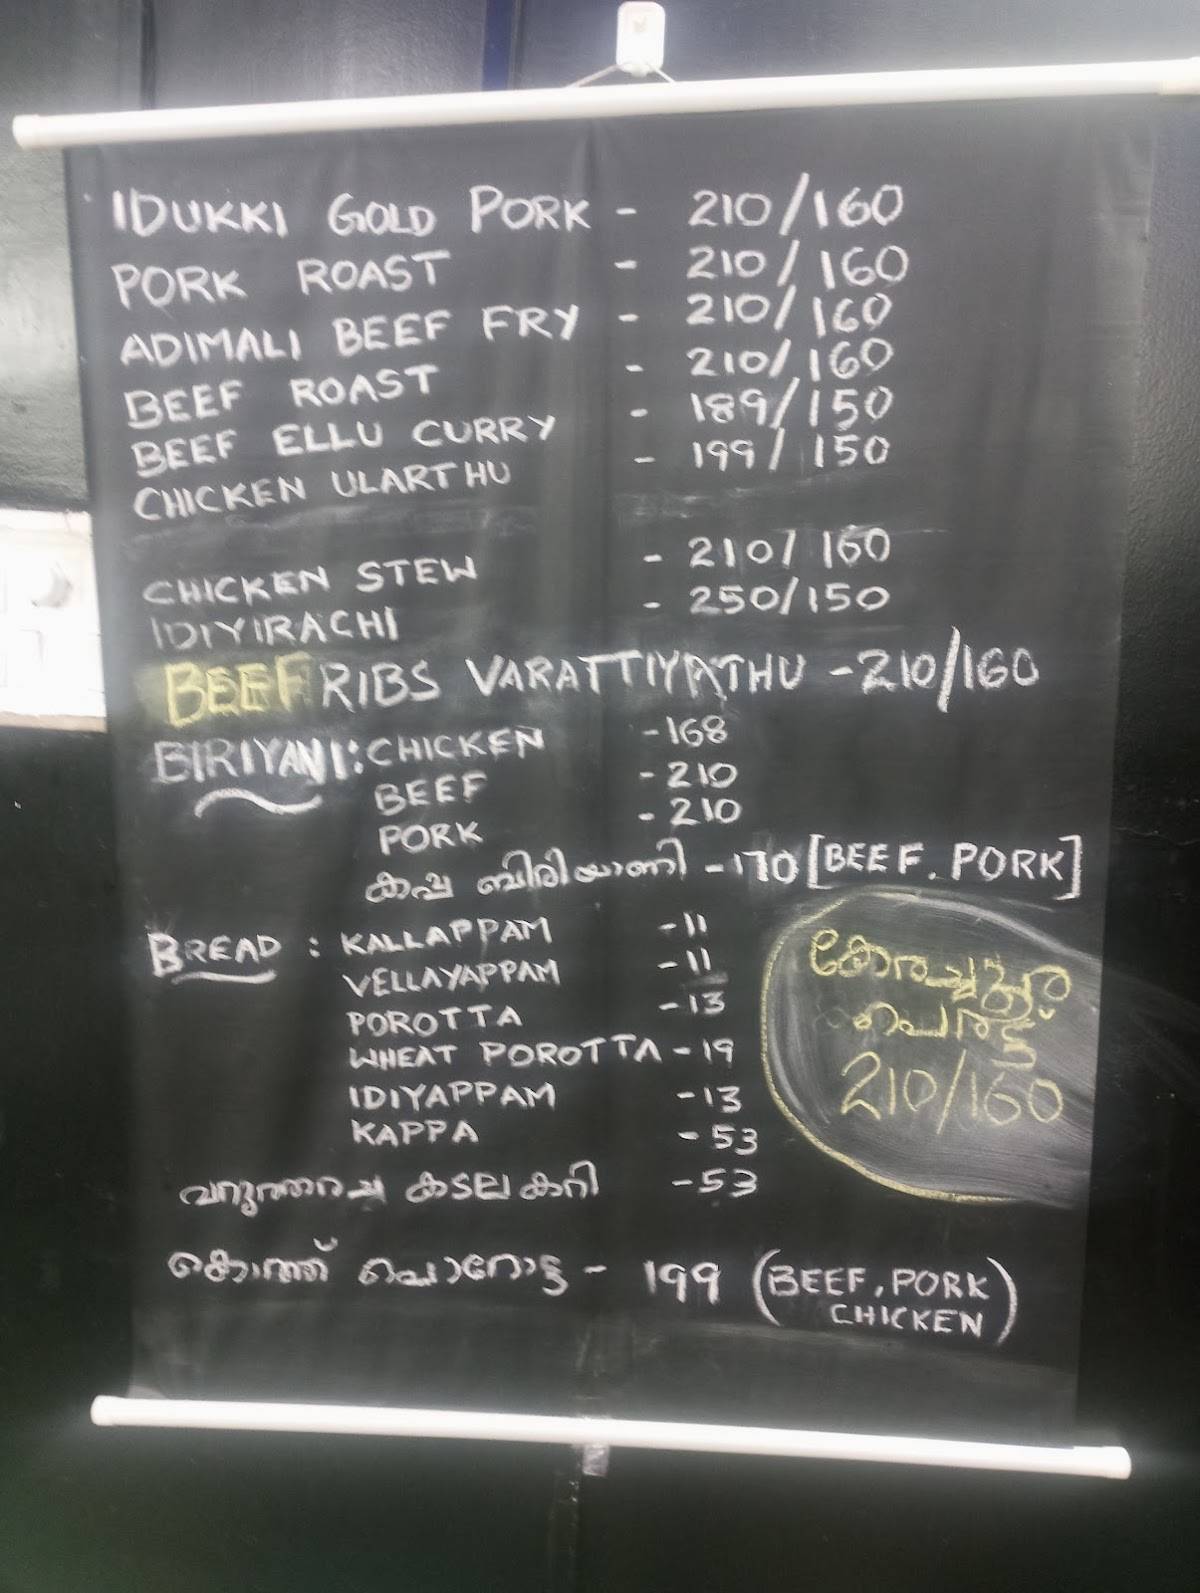 IDUKKI GOLD PORK - 210/160
PORK ROAST - 210/160
ADIMALI BEEF FRY - 210/160
BEEF ROAST - 210/160
BEEF ELLU CURRY - 189/150
CHICKEN ULARTHU - 199/150
CHICKEN STEW - 210/160
IDIYIRACHI - 250/150
BEEF RIBS VARATTIYATHU - 210/160
BIRIYANI: CHICKEN - 168
BEEF - 210
PORK - 210
കപ്പ ബിരിയാണി - 170 [BEEF, PORK]
BREAD : KALLAPPAM - 11
VELLAYAPPAM - 11
POROTTA - 13
WHEAT POROTTA - 19
IDIYAPPAM - 13
KAPPA - 53
വറുത്തരച്ച കടലകറി - 53
കൊത്ത് പൊറോട്ട - 199 (BEEF, PORK
CHICKEN)
210/160